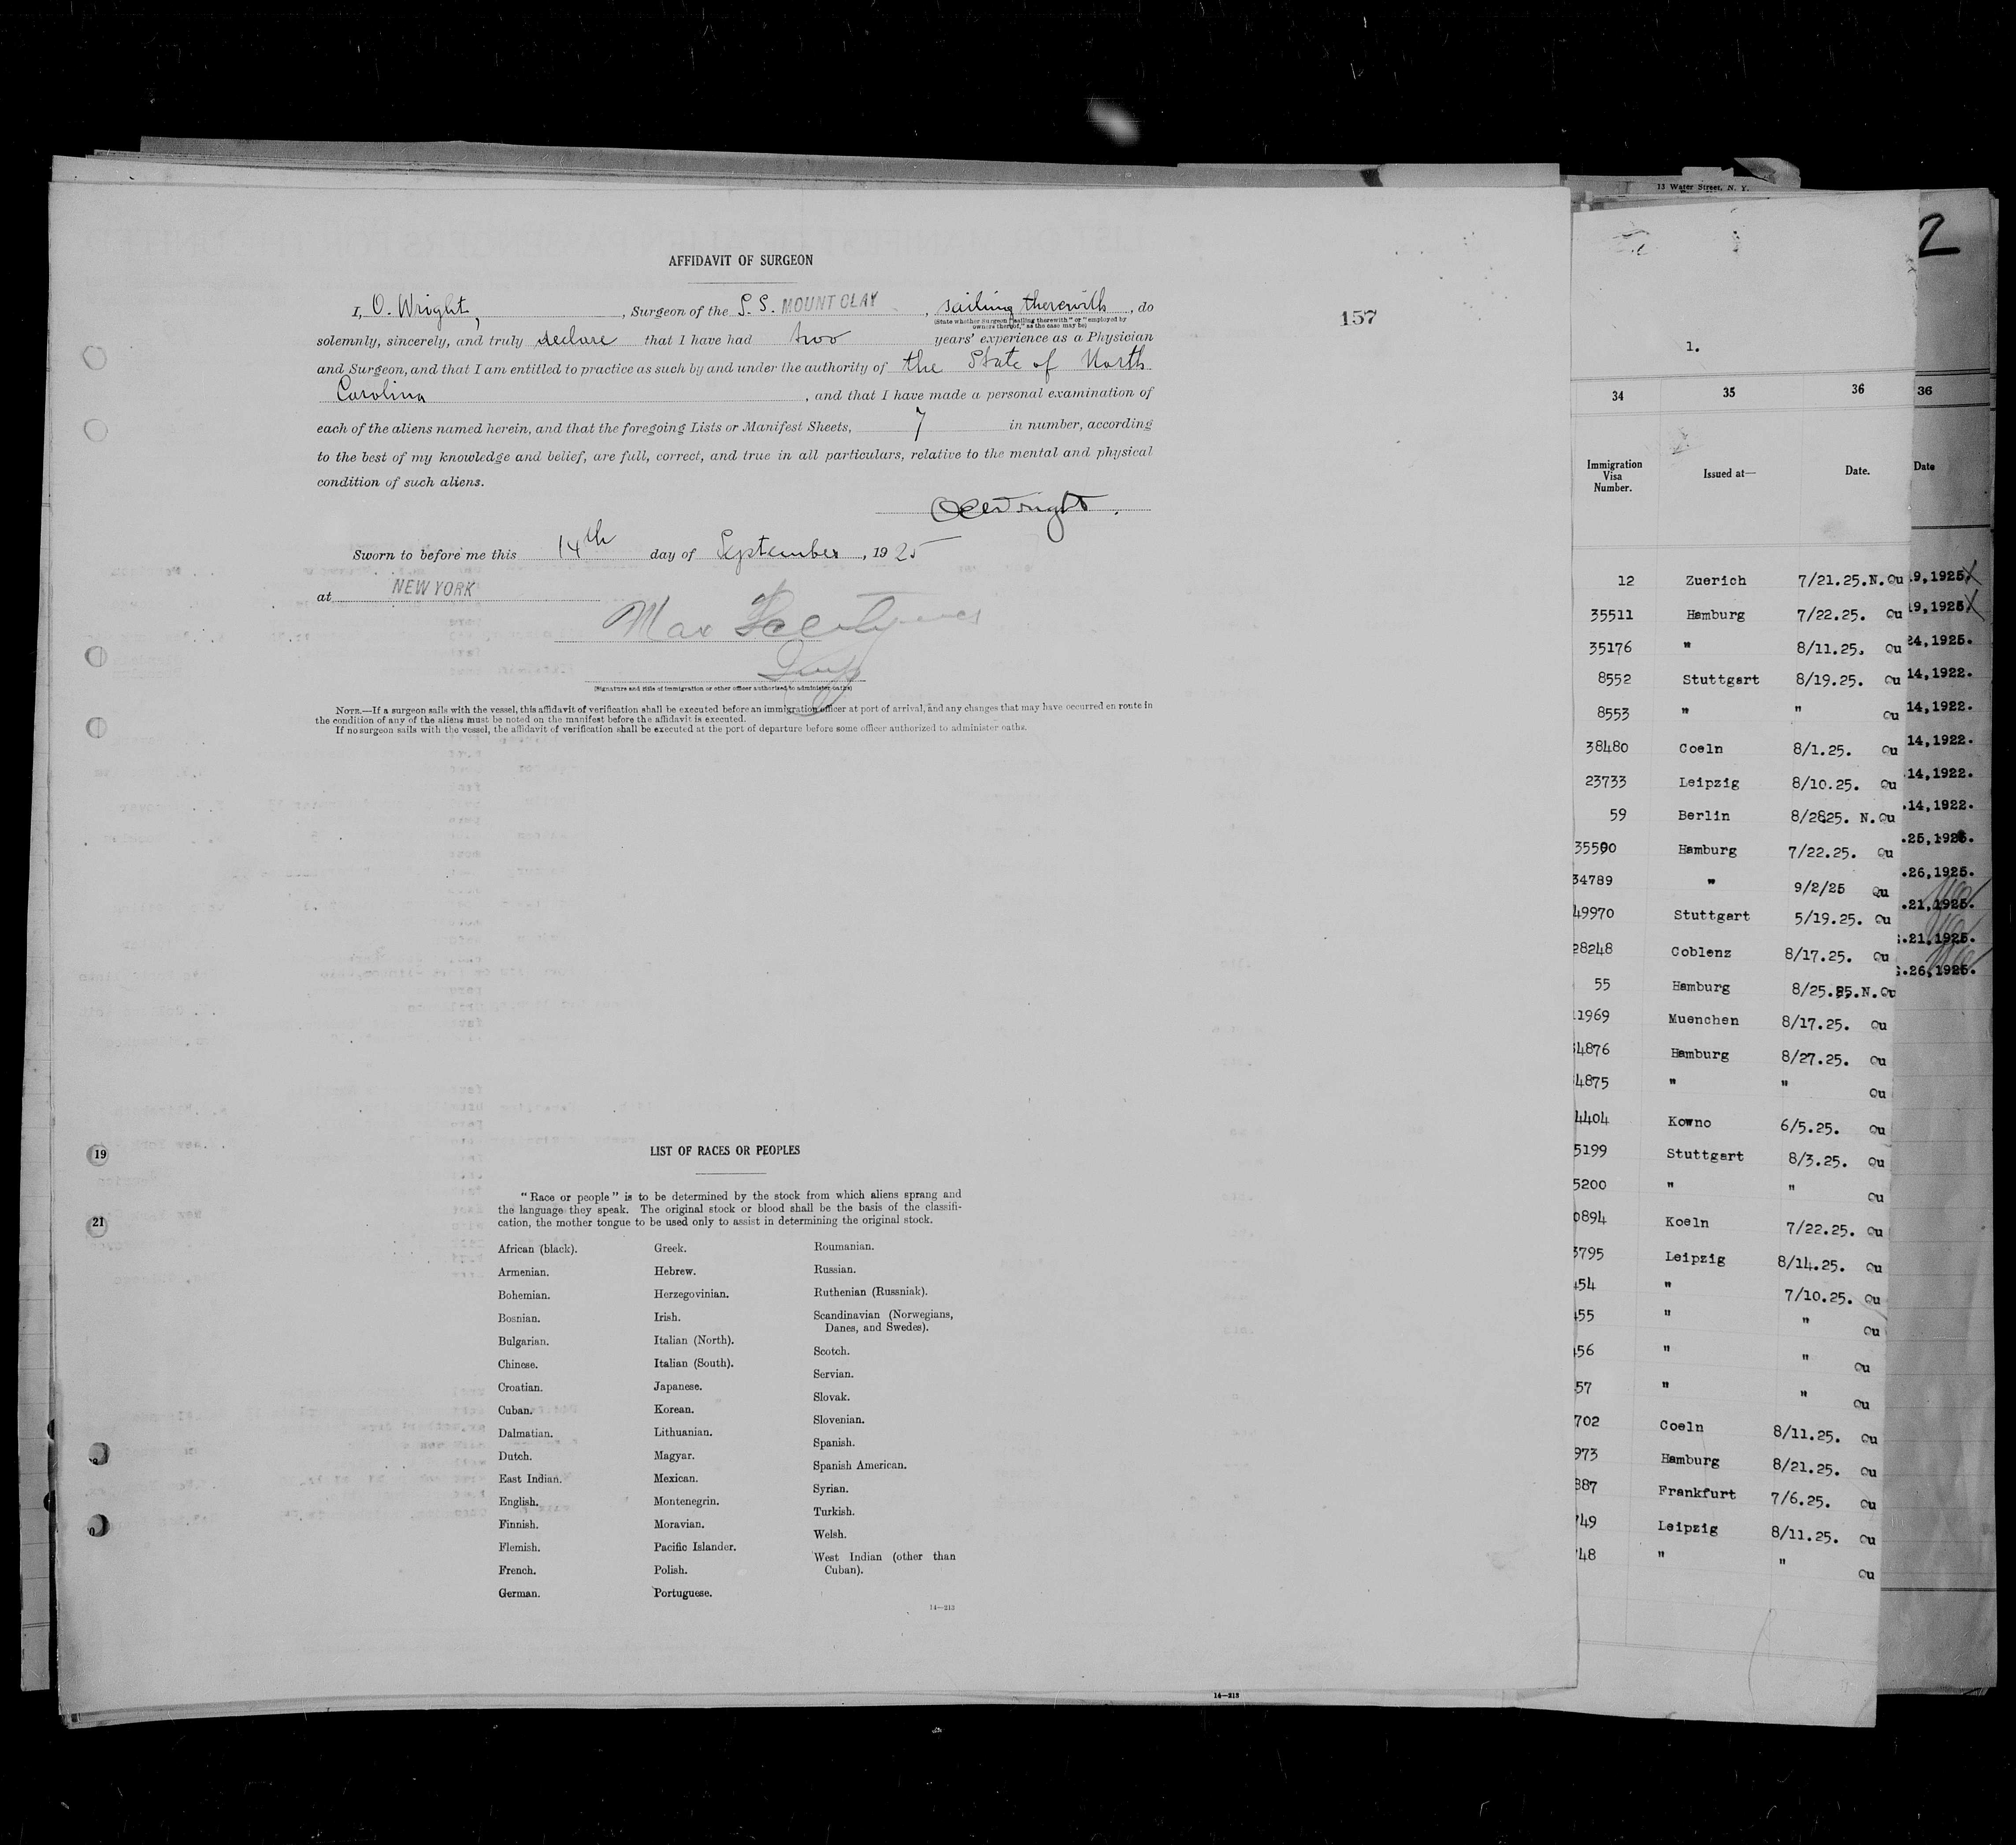 13 Water Street, N. Y.
2
AFFIDAVIT OF SURGEON
I, O. Wright, , Surgeon of the S. S. MOUNT CLAY , sailing therewith , do
(State whether Surgeon "sailing therewith" or "employed by
owners thereof," as the case may be)
157
solemnly, sincerely, and truly declare that I have had two years' experience as a Physician
and Surgeon, and that I am entitled to practice as such by and under the authority of the State of North
Carolina , and that I have made a personal examination of
each of the aliens named herein, and that the foregoing Lists or Manifest Sheets, 7 in number, according
to the best of my knowledge and belief, are full, correct, and true in all particulars, relative to the mental and physical
condition of such aliens.
Wright .
Sworn to before me this 14th day of September , 1925
at NEW YORK
Max
(Signature and title of immigration or other officer authorized to administer oaths)
NOTE.—If a surgeon sails with the vessel, this affidavit of verification shall be executed before an immigration officer at port of arrival, and any changes that may have occurred en route in
the condition of any of the aliens must be noted on the manifest before the affidavit is executed.
If no surgeon sails with the vessel, the affidavit of verification shall be executed at the port of departure before some officer authorized to administer oaths.
19
21
LIST OF RACES OR PEOPLES
"Race or people" is to be determined by the stock from which aliens sprang and
the language they speak. The original stock or blood shall be the basis of the classifi-
cation, the mother tongue to be used only to assist in determining the original stock.
African (black).
Armenian.
Bohemian.
Bosnian.
Bulgarian.
Chinese.
Croatian.
Cuban.
Dalmatian.
Dutch.
East Indian.
English.
Finnish.
Flemish.
French.
German.
Greek.
Hebrew.
Herzegovinian.
Irish.
Italian (North).
Italian (South).
Japanese.
Korean.
Lithuanian.
Magyar.
Mexican.
Montenegrin.
Moravian.
Pacific Islander.
Polish.
Portuguese.
Roumanian.
Russian.
Ruthenian (Russniak).
Scandinavian (Norwegians,
Danes, and Swedes).
Scotch.
Servian.
Slovak.
Slovenian.
Spanish.
Spanish American.
Syrian.
Turkish.
Welsh.
West Indian (other than
Cuban).
14—213
14—213
1.
34 35 36
Immigration
Visa
Number.
Issued at—
Date.
12 Zuerich 7/21.25.N.Qu
35511 Hamburg 7/22.25. Qu
35176 " 8/11.25. Qu
8552 Stuttgart 8/19.25. Qu
8553 " " Qu
38480 Coeln 8/1.25. Qu
23733 Leipzig 8/10.25. Qu
59 Berlin 8/2825. N.Qu
35590 Hamburg 7/22.25. Qu
34789 " 9/2/25 Qu
49970 Stuttgart 5/19.25. Qu
28248 Coblenz 8/17.25. Qu
55 Hamburg 8/25.25.N.Qu
1969 Muenchen 8/17.25. Qu
4876 Hamburg 8/27.25. Qu
4875 " " Qu
4404 Kowno 6/5.25. Qu
5199 Stuttgart 8/3.25. Qu
5200 " " Qu
0894 Koeln 7/22.25. Qu
3795 Leipzig 8/14.25. Qu
454 " 7/10.25. Qu
455 " " Qu
456 " " Qu
57 " " Qu
702 Coeln 8/11.25. Qu
973 Hamburg 8/21.25. Qu
887 Frankfurt 7/6.25. Qu
749 Leipzig 8/11.25. Qu
748 " " Qu
36
Date
19,1925.
19,1925.
24,1925.
14,1922.
14,1922.
14,1922.
14,1922.
.14,1922.
.25,1925.
.26,1925.
.21,1925.
.21,1925.
.26,1925.